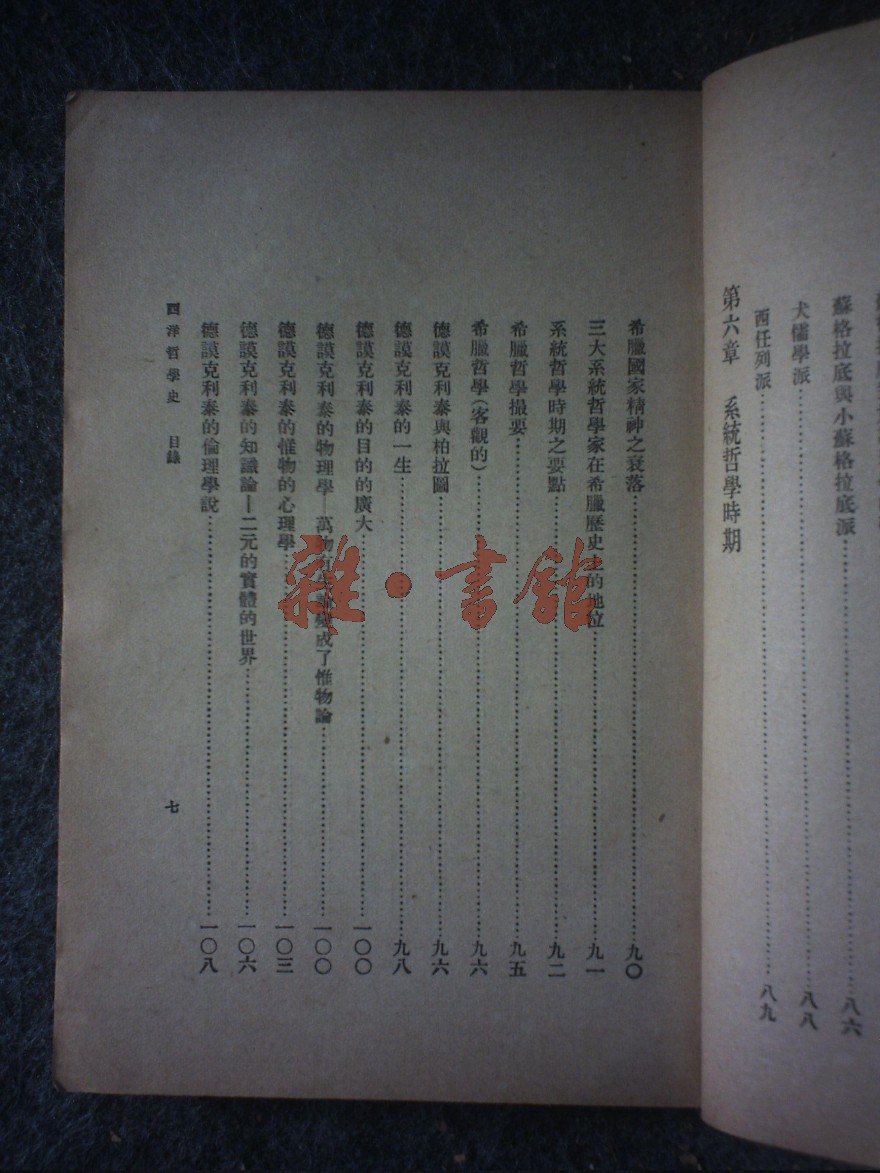 蘇格拉底與小蘇格拉底派……八六
犬儒學派……八八
西任列派……八九
第六章 系統哲學時期
希臘國家精神之衰落……九〇
三大系統哲學家在希臘歷史上的地位……九一
系統哲學時期之要點……九二
希臘哲學撮要……九五
希臘哲學(客觀的)……九六
德謨克利泰與柏拉圖……九六
德謨克利泰的一生……九八
德謨克利泰的目的的廣大……一〇〇
德謨克利泰的物理學 萬物 成了惟物論……一〇〇
德謨克利泰的惟物的心理學……一〇三
德謨克利泰的知識論—二元的實體的世界……一〇六
德謨克利泰的倫理學說……一〇八
西洋哲學史 目錄
七
雜·書館